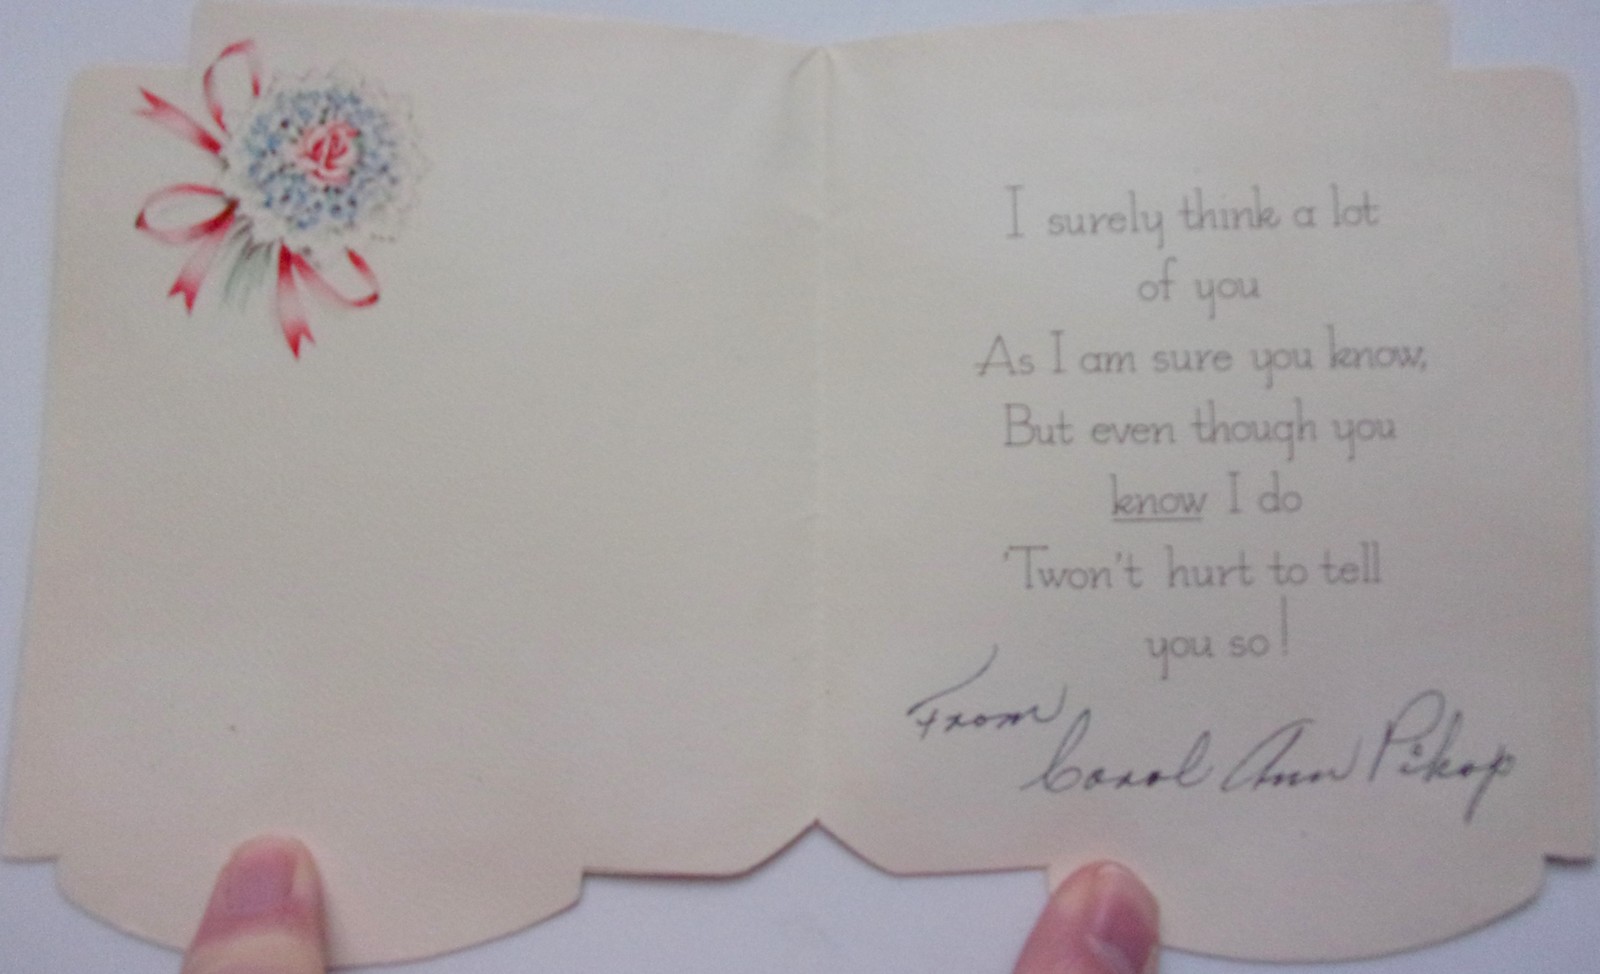 I surely think a lot
of you
As I am sure you know,
But even though you
know I do
'Twon't hurt to tell
you so!
From
Carol Ann Pikop